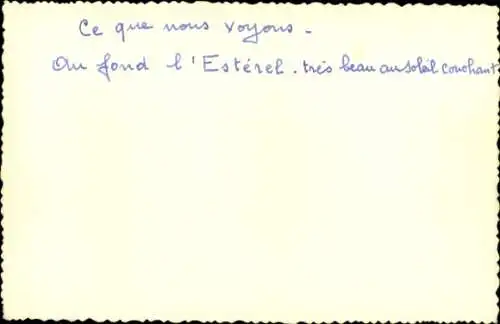 Ce que nous voyons -
Au fond l'Estérel. très beau au soleil couchant.